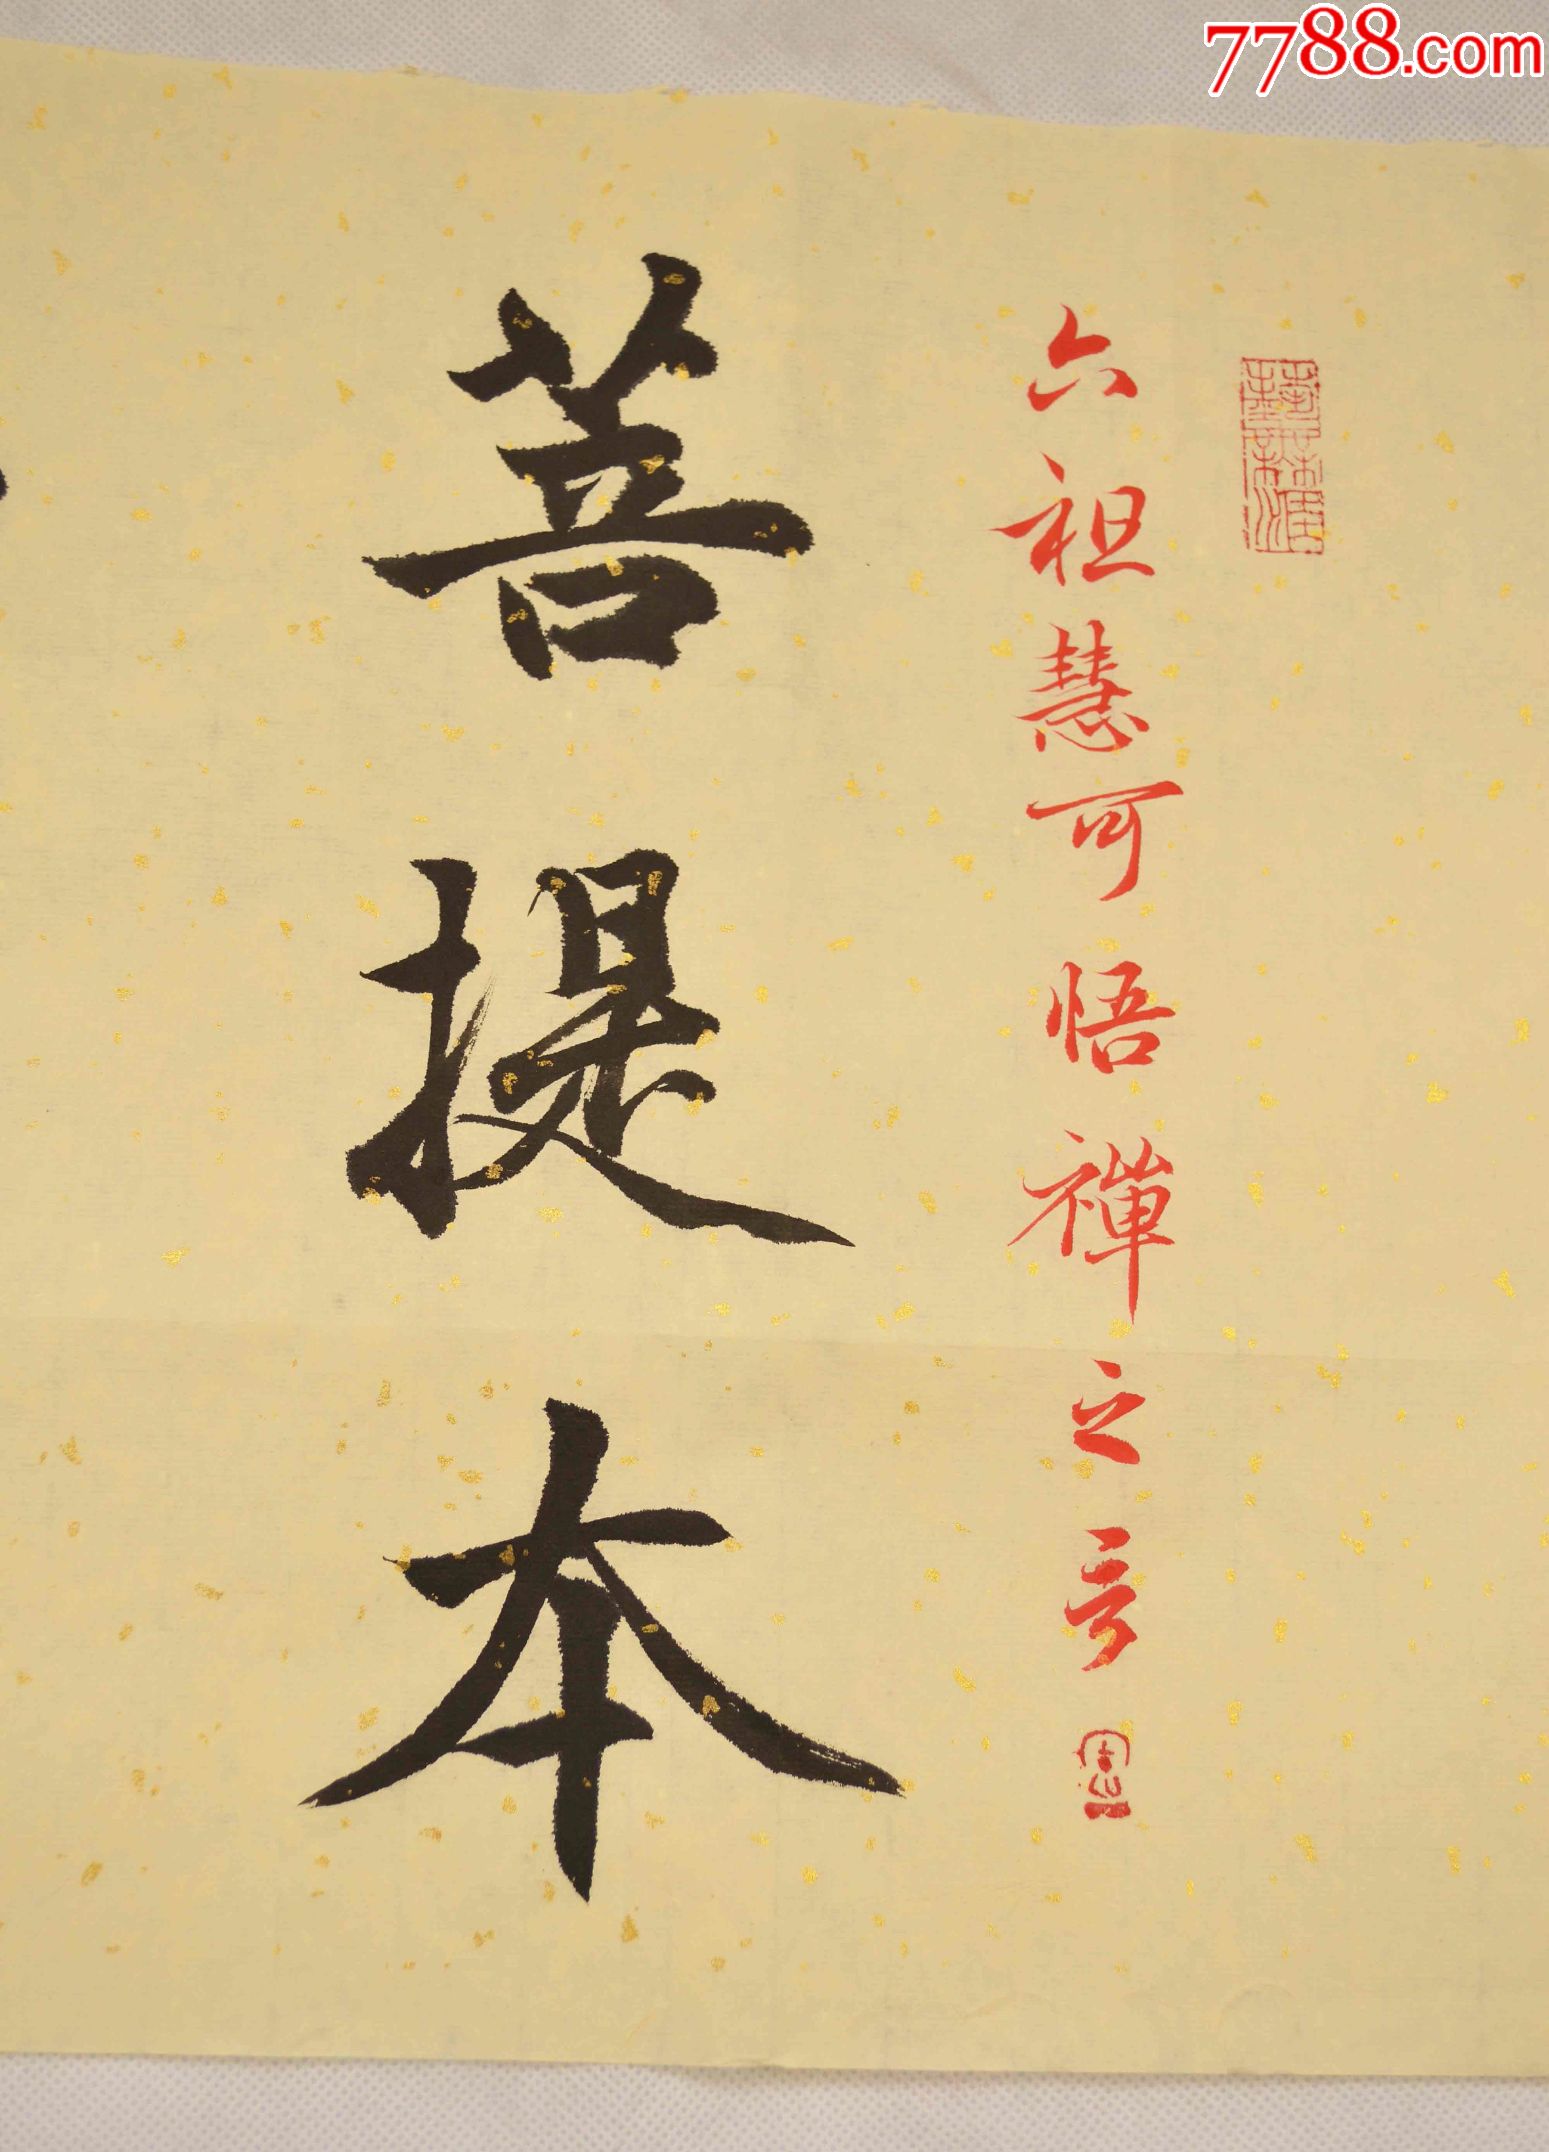 7788.com
六祖慧可悟禪之言
菩提本